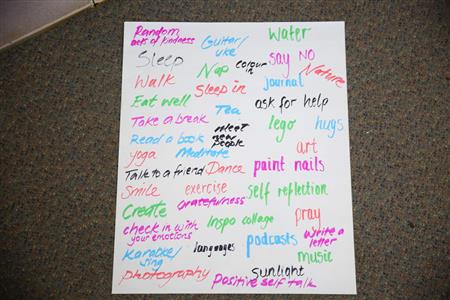 Random
acts of kindness
Guitar/
uke
water
Sleep
Nap
colour
in
say NO
Nature
Walk
Sleep in
journal
Eat well
Tea
ask for help
Take a break
lego
hugs
Read a book
meet
new
people
art
yoga
Meditate
paint nails
Talk to a friend
Dance
Smile
exercise
self reflection
Create
Gratefulness
Inspo collage
pray
check in with
your emotions
languages
podcasts
write a
letter
Karaoke/
sing
music
photography
sunlight
positive self talk